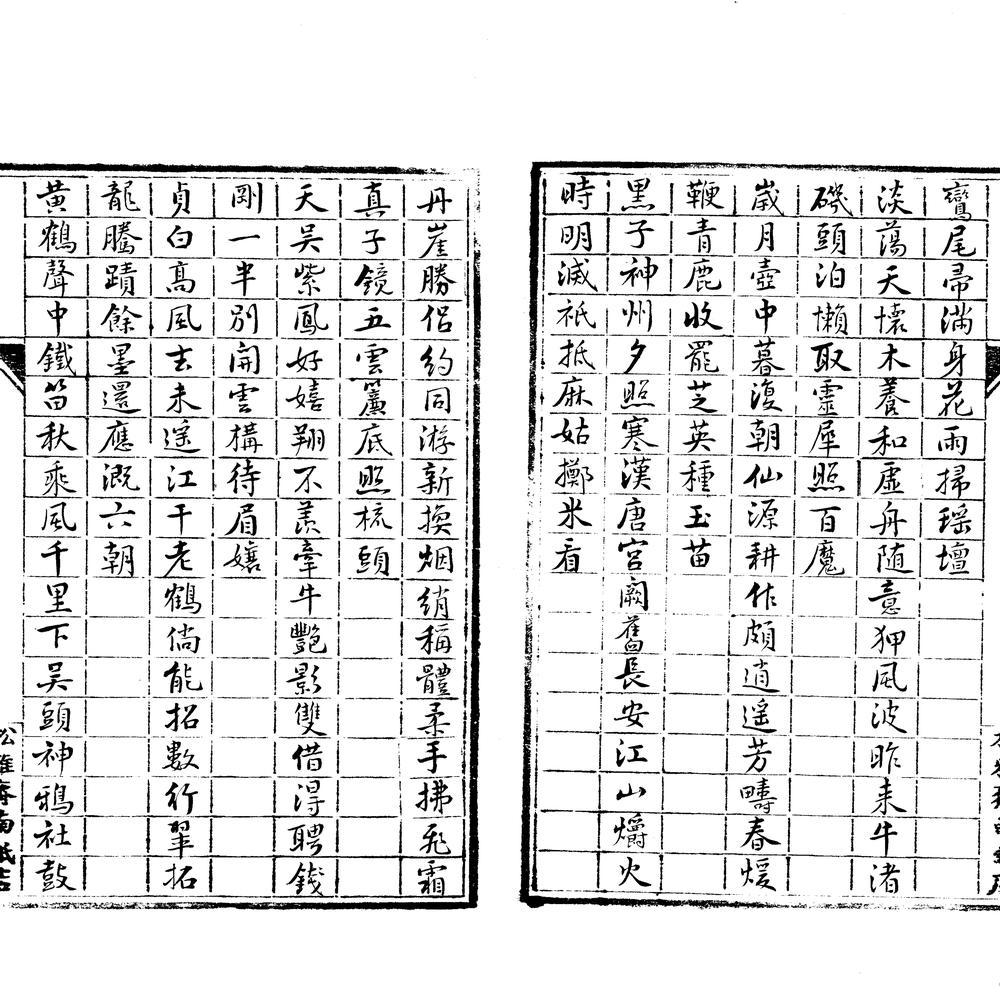 鸞尾帚滿身花雨掃瑶壇
淡蕩天懷木養和虛舟随意狎風波昨来牛渚
磯頭泊懶取靈犀照百魔
嵗月壺中暮復朝仙源耕作頗逍遥芳疇春煖
鞭青鹿收罷芝英種玉苗
黑子神州夕照寒漢唐宮闕舊長安江山爝火
時明滅祇抵麻姑擲米看
丹崖勝侣約同游新換烟綃稱體柔手拂飛霜
真子鏡五雲簾底照梳頭
天吴紫鳳好嬉翔不羨牽牛艷影雙借得聘錢
剛一半別開雲構待眉嬉
貞白髙風去未遥江干老鶴倘能招數行翠拓
龍騰蹟餘墨還應溉六朝
黄鶴聲中鐵笛秋乘風千里下吴頭神鴉社鼓